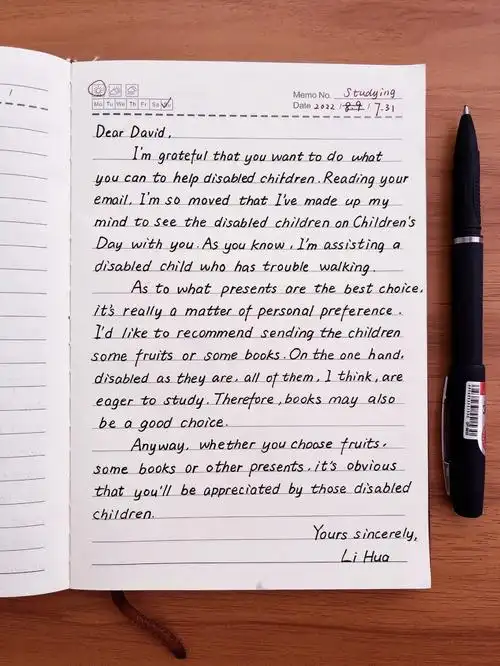 Memo No. Studying
Mo Tu We Th Fr Sa Su
Date 2022 / 8.9 / 7.31
Dear David,
I'm grateful that you want to do what
you can to help disabled children. Reading your
email, I'm so moved that I've made up my
mind to see the disabled children on Children's
Day with you. As you know, I'm assisting a
disabled child who has trouble walking.
As to what presents are the best choice,
it's really a matter of personal preference.
I'd like to recommend sending the children
some fruits or some books. On the one hand,
disabled as they are, all of them, I think, are
eager to study. Therefore, books may also
be a good choice.
Anyway, whether you choose fruits,
some books or other presents, it's obvious
that you'll be appreciated by those disabled
children.
Yours sincerely,
Li Hua